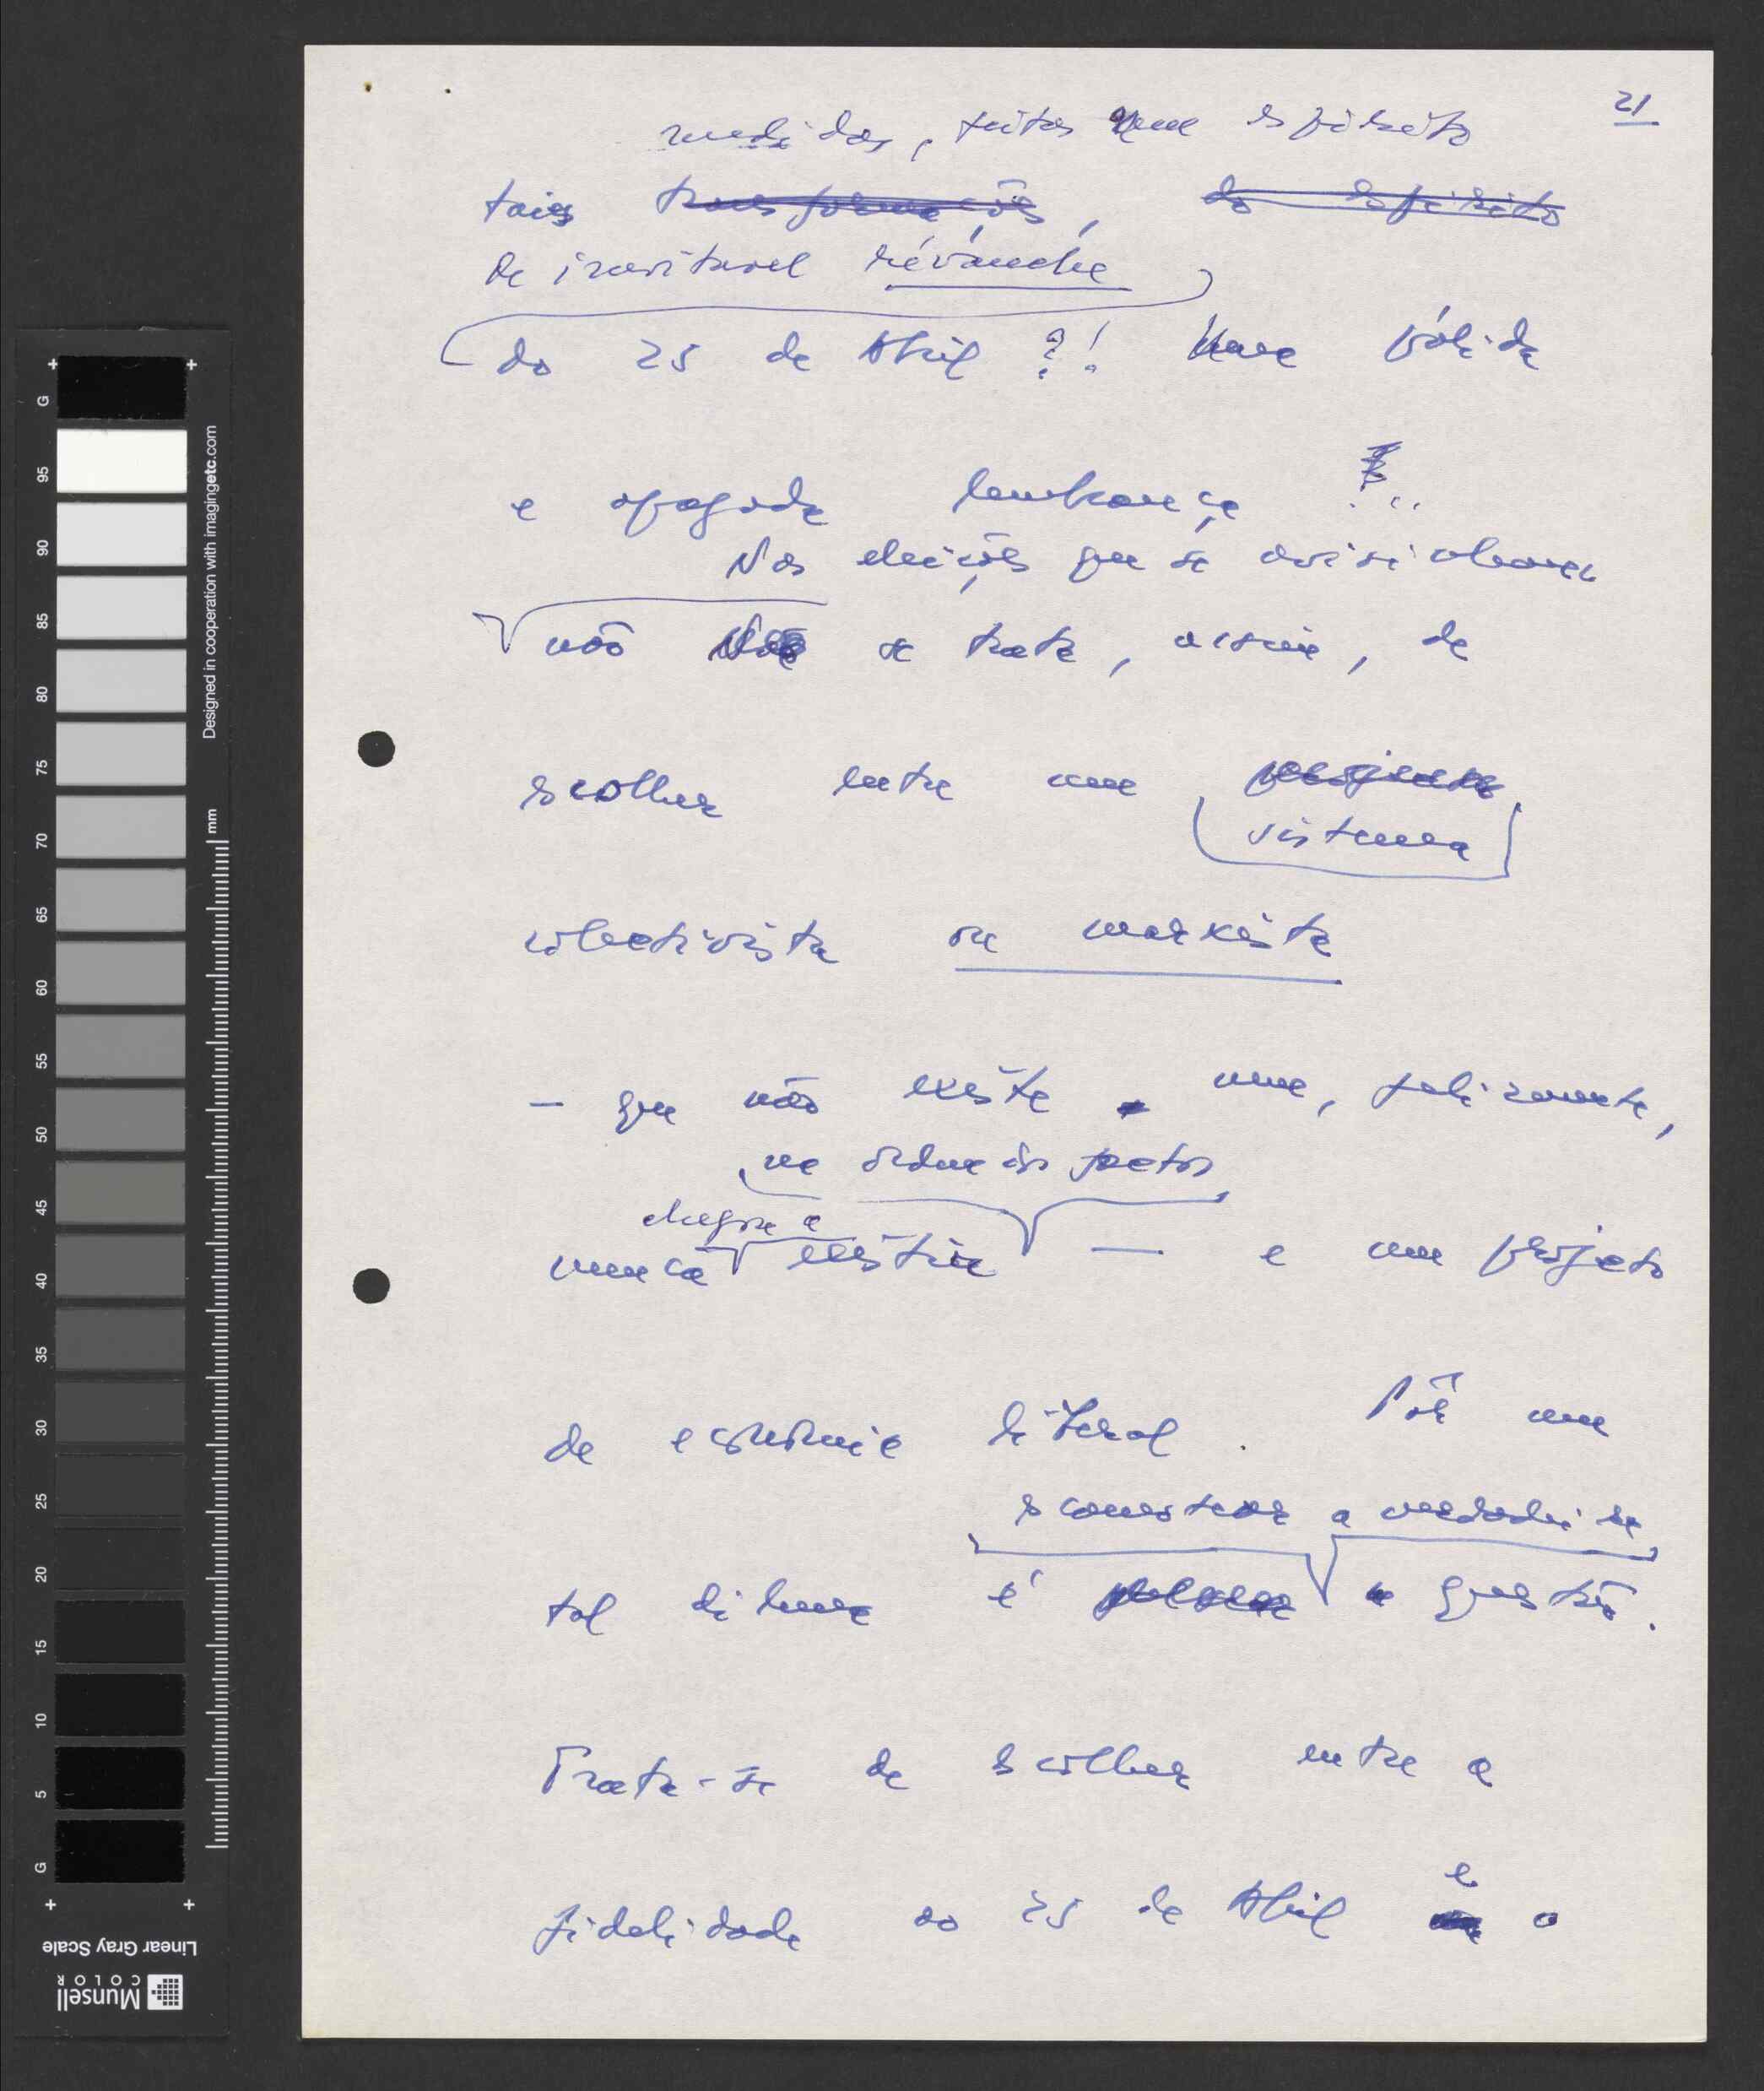 21
medidas, feitas num espírito
tais transformações, do espírito
de inevitavel révanche
do 25 de Abril ?! Uma pálida
e apagada lembrança ...
Nas eleições que se avisinham
não Não se trata, assim, de
escolher entre um projecto
sistema
colectivista ou marxista
– que não existe nem, felizmente,
na ordem dos factos
chegou a
nunca existir — e um projeto
de economia liberal. Pôr um
escamotear a verdadeira
tal dilema é a questão.
Trata-se de escolher entre a
e
fidelidade ao 25 de Abril ou o
G 95 90 85 80 75 70 65 60 55 50 45 40 35 30 25 20 15 10 5 G
mm
Designed in cooperation with imagingetc.com
Linear Gray Scale
Munsell
COLOR